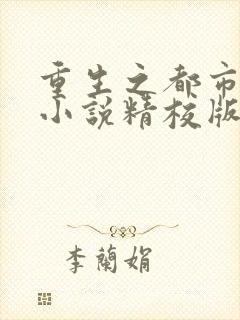 重生之都市
小说精校版
李蘭娟